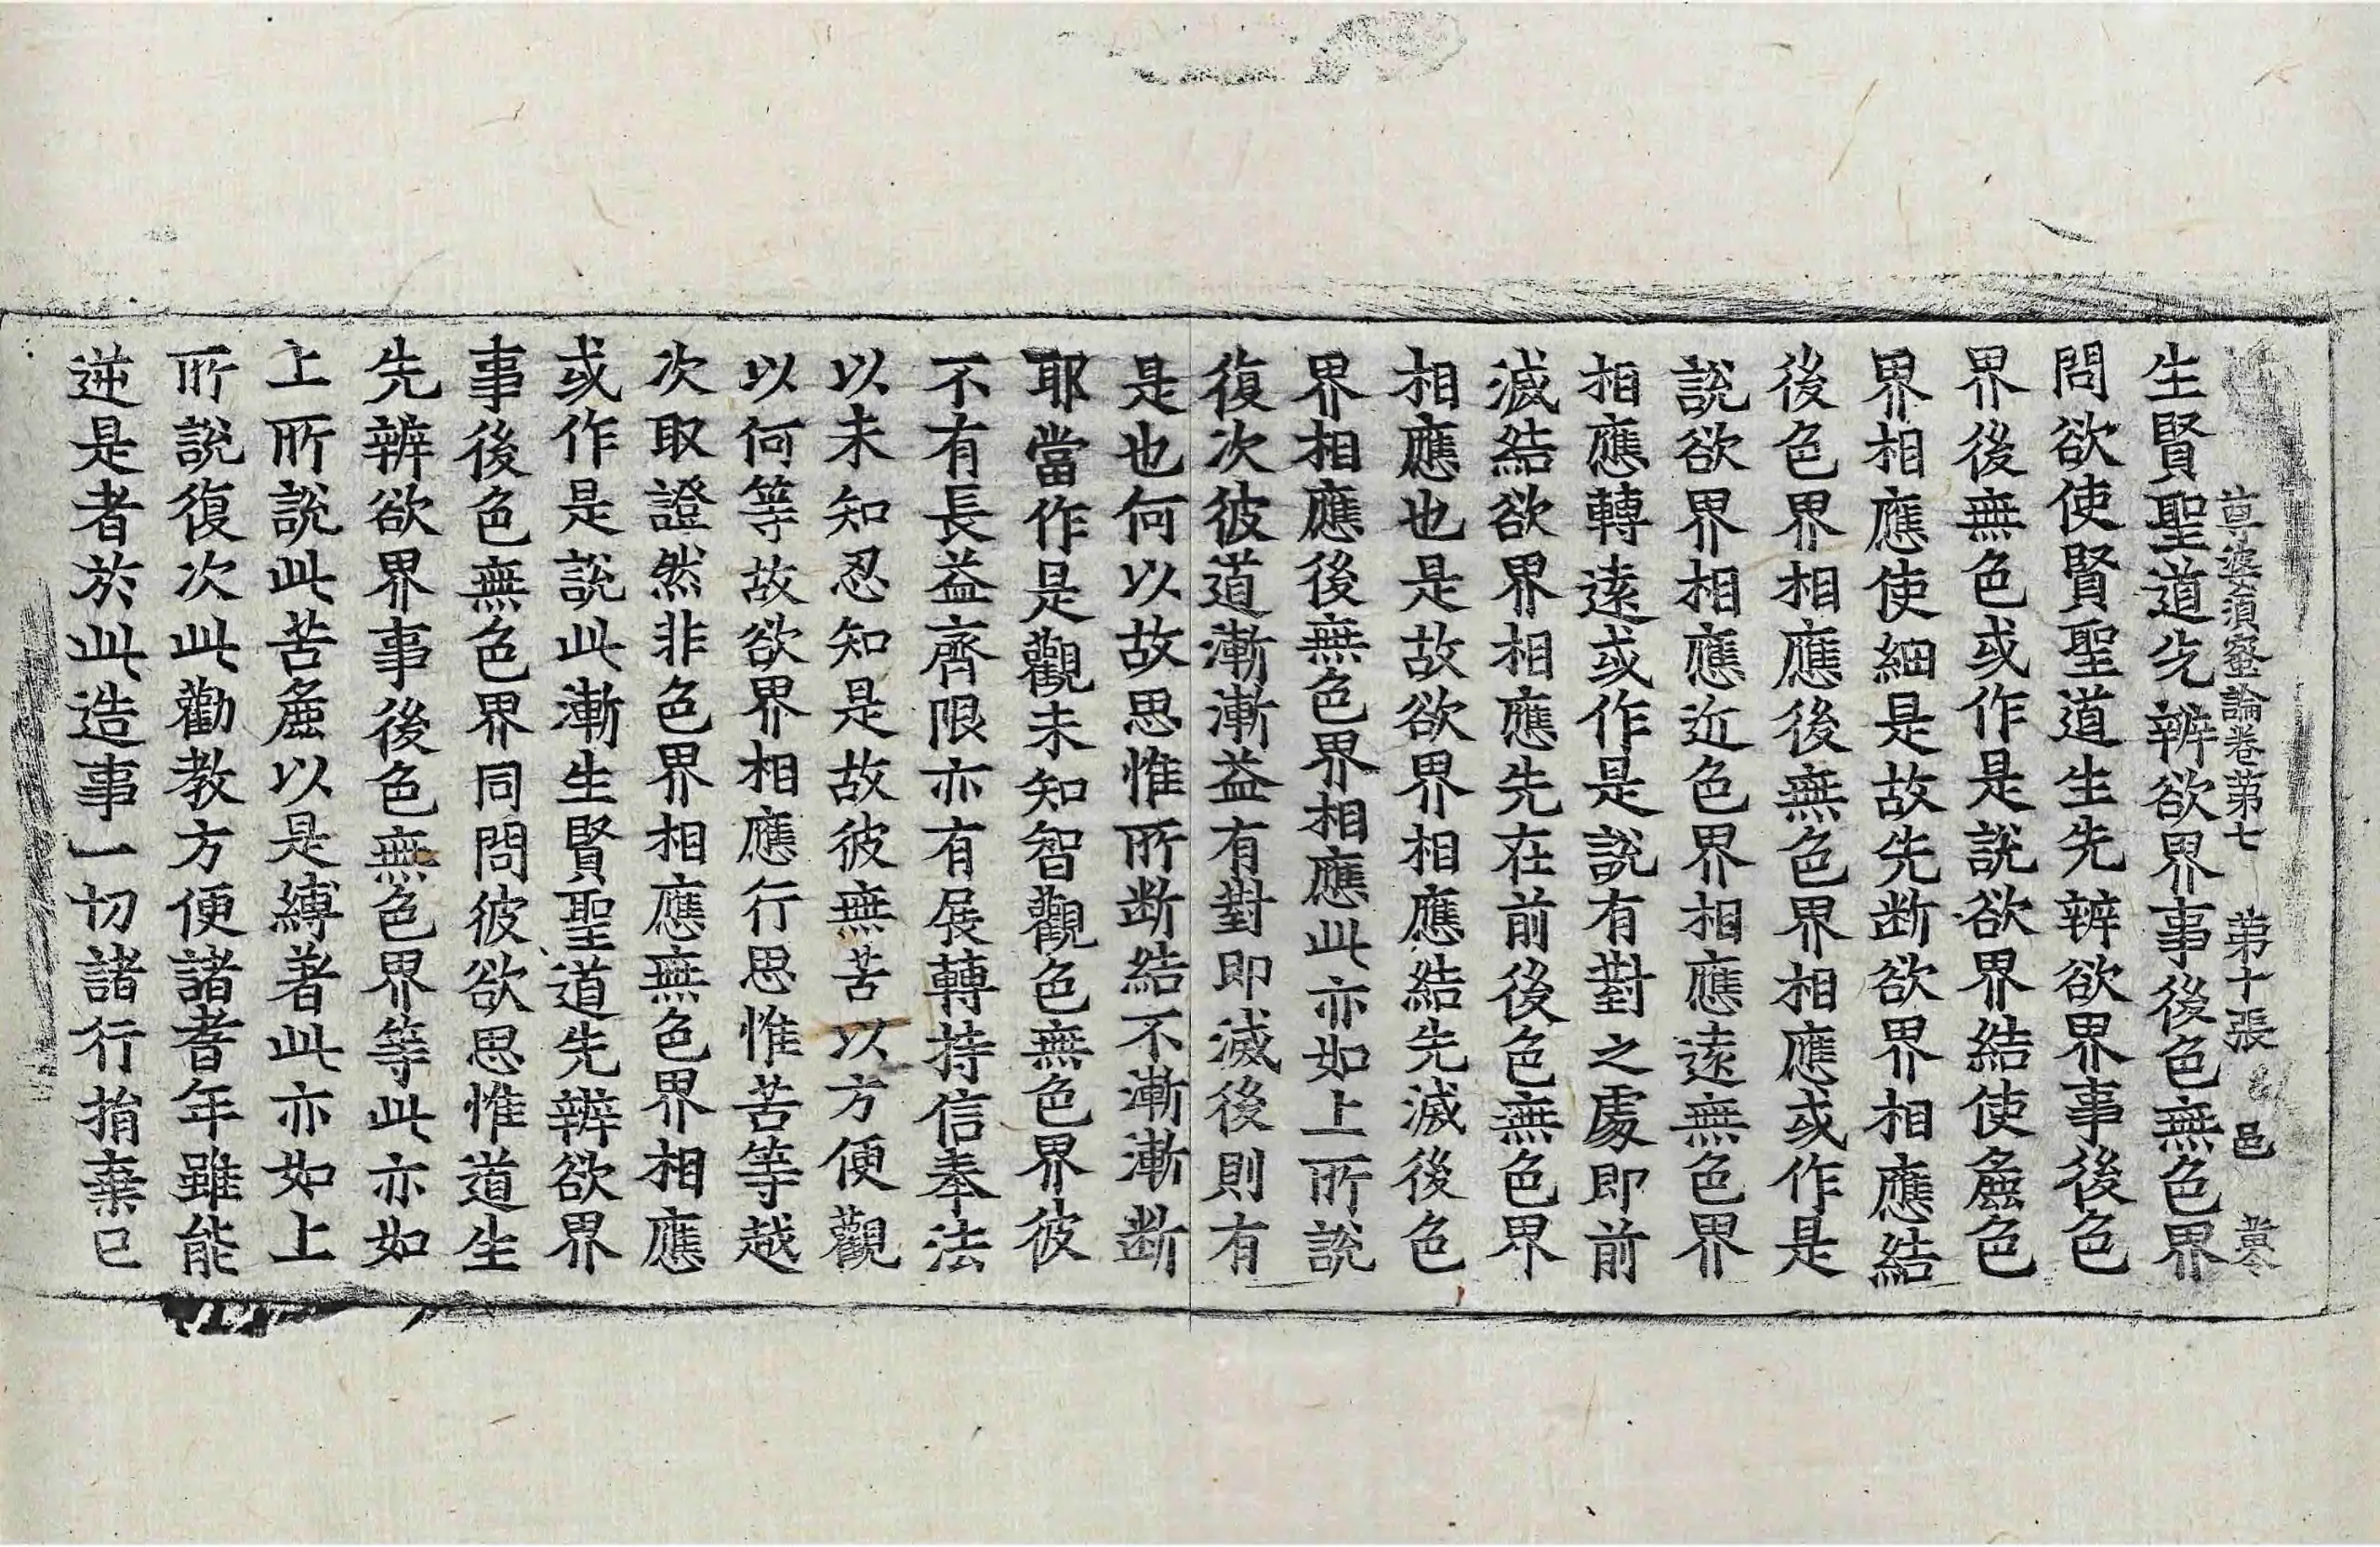 尊婆須蜜論卷第七　第十張　邑
生賢聖道先辨欲界事後色無色界
問欲使賢聖道生先辨欲界事後色
界後無色或作是說欲界結使麁色
界相應使細是故先断欲界相應結
後色界相應後無色界相應或作是
說欲界相應近色界相應遠無色界
相應轉遠或作是說有對之處即前
滅結欲界相應先在前後色無色界
相應也是故欲界相應結先滅後色
界相應後無色界相應此亦如上所說
復次彼道漸漸益有對即滅後則有
是也何以故思惟所断結不漸漸断
耶當作是觀未知智觀色無色界彼
不有長益齊限亦有展轉持信奉法
以未知忍知是故彼無苦以方便觀
以何等故欲界相應行思惟苦等越
次取證然非色界相應無色界相應
或作是說此漸生賢聖道先辨欲界
事後色無色界同問彼欲思惟道生
先辨欲界事後色無色界等此亦如
上所說此苦麁以是縛著此亦如上
所說復次此勸教方便諸耆年雖能
逆是者於此造事一切諸行捐棄已